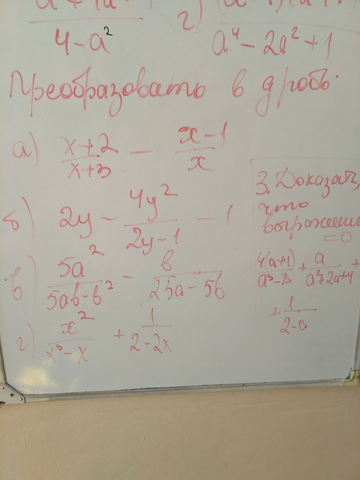 4-a²
г)
a⁴-2a²+1
Преобразовать в дробь.
а) x+2/x+3 - x-1/x
б) 2y - 4y²/2y-1 - 1
в) 5a²/5ab-b² - b/25a-5b
г) x²/x³-x + 1/2-2x
3. Доказать,
что
выражение
=0
4(a+1)/a³-8 + a/a²+2a+4 +
+ 1/2-a